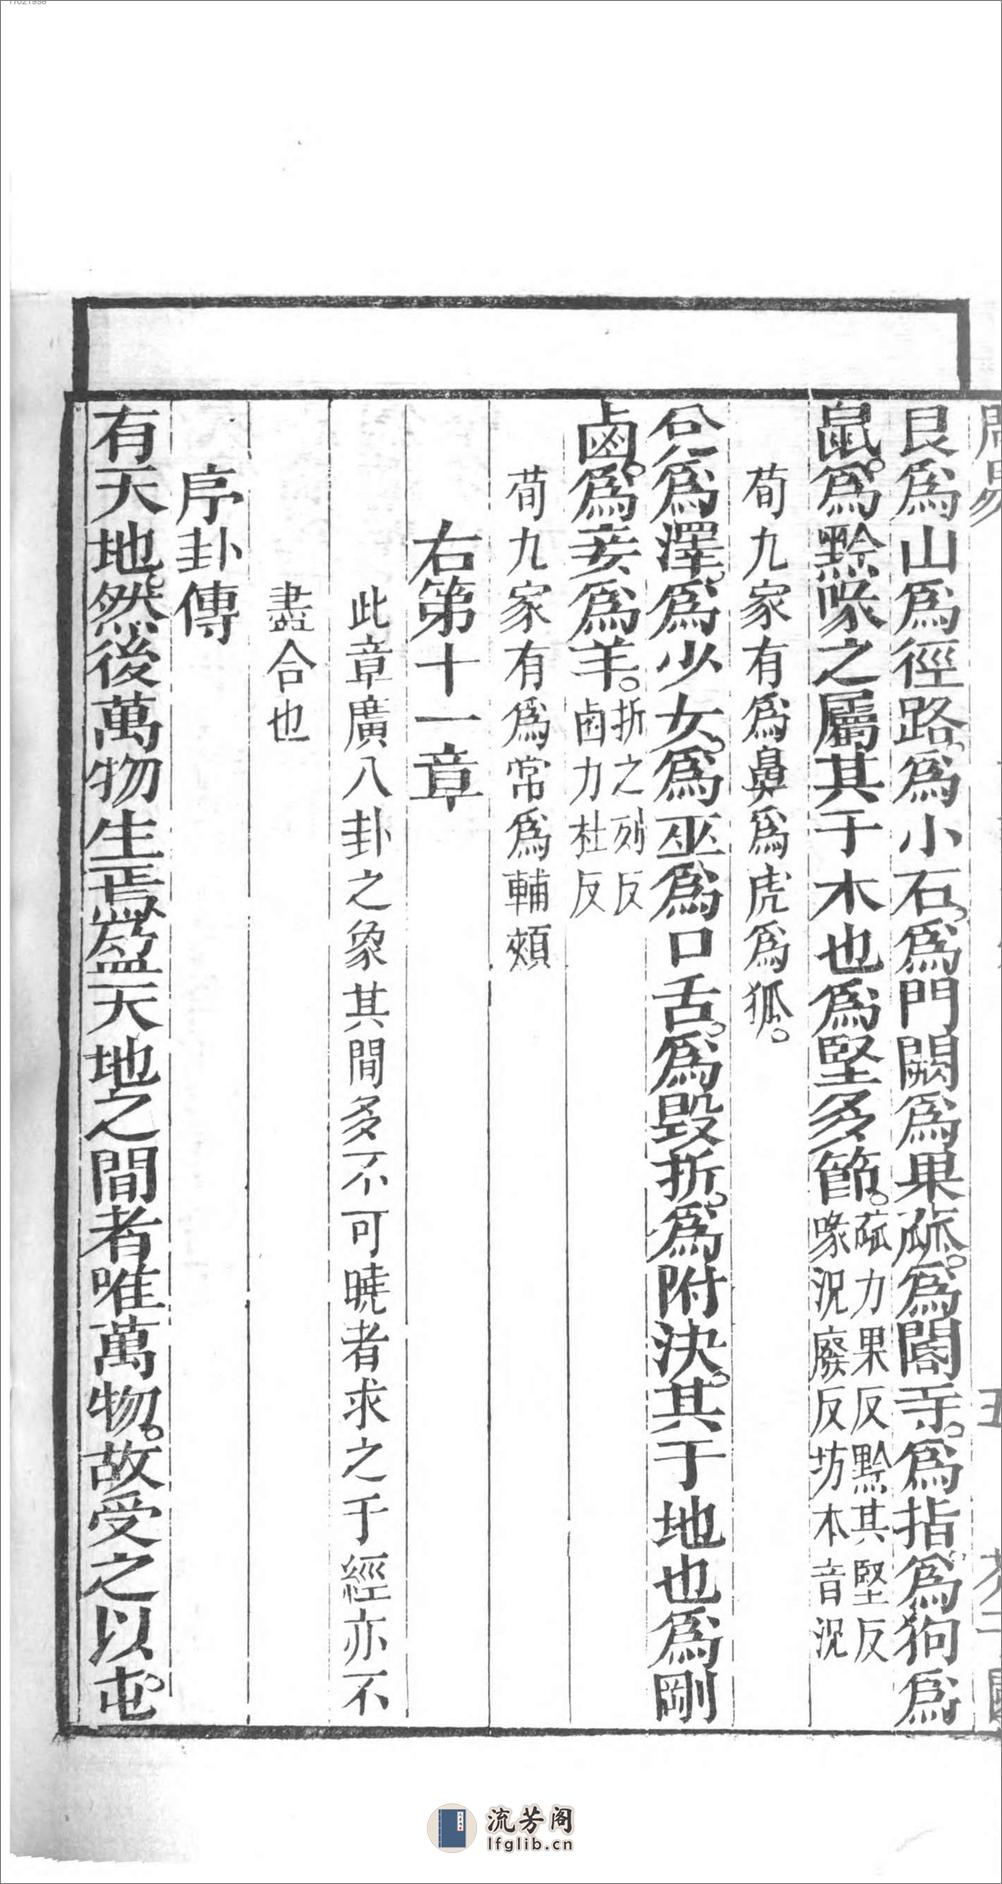 艮爲山爲徑路。爲小石。爲門闕爲果蓏。爲閽寺。爲指。爲狗爲
鼠。爲黔喙之屬其于木也爲堅多節。蓏力果反黔其堅反
喙況廢反坊本音況
荀九家有爲鼻爲虎爲狐。
兊爲澤。爲少女。爲巫爲口舌。爲毀折。爲附決。其于地也爲剛
鹵。爲妾爲羊。折之列反
鹵力杜反
荀九家有爲常爲輔頰
右第十一章
此章廣八卦之象其間多不可曉者求之于經亦不
盡合也
序卦傳
有天地。然後萬物生焉。盈天地之間者唯萬物。故受之以屯。
流芳阁
lfglib.cn